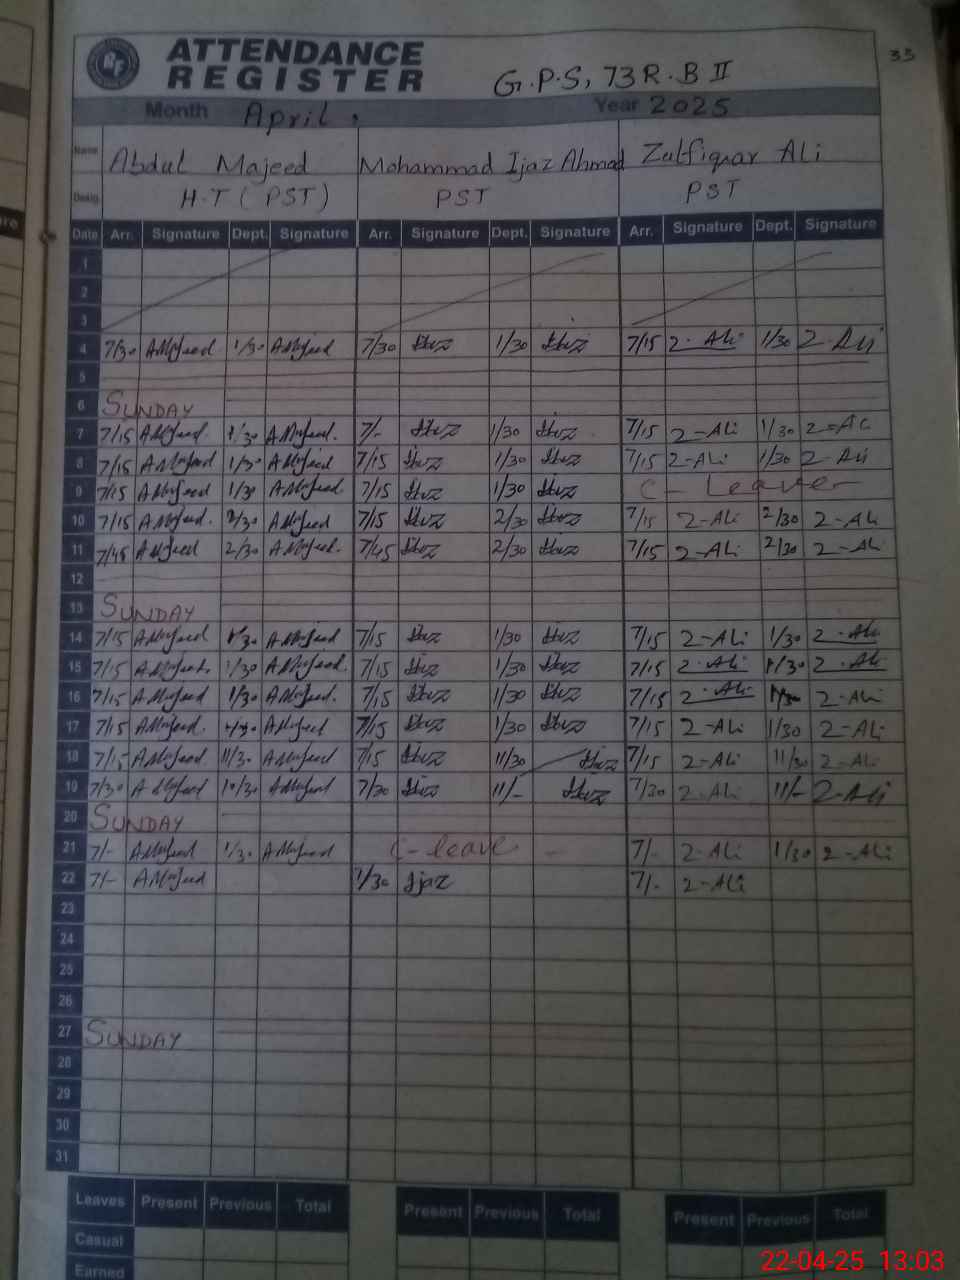 33
ATTENDANCE
REGISTER
G.P.S, 73 R.B II
Month April, Year 2025
Name Abdul Majeed Mohammad Ijaz Ahmad Zulfiqar Ali
Desig. H.T (PST) PST PST
Date Arr. Signature Dept. Signature Arr. Signature Dept. Signature Arr. Signature Dept. Signature
1
2
3
4 7/30 AMajeed 1/30 AMajeed 7/30 1/30 7/15 Z-Ali 1/30 Z-Ali
5
6 SUNDAY
7 7/15 AMajeed. 1/30 AMajeed. 7/- 1/30 7/15 Z-Ali 1/30
8 7/15 AMajeed 1/30 AMajeed 7/15 1/30 7/15 Z-Ali 1/30 Z-Ali
9 7/15 AMajeed 1/30 AMajeed. 7/15 1/30 C-Leave
10 7/15 AMajeed. 2/30 AMajeed 7/15 2/30 7/15 Z-Ali 2/30 Z-Ali
11 7/45 AMajeed 2/30 AMajeed. 7/45 2/30 7/15 Z-Ali 2/30 Z-Ali
12
13 SUNDAY
14 7/15 AMajeed 1/30 AMajeed 7/15 1/30 7/15 Z-Ali 1/30 Z-Ali
15 7/15 AMajeed. 1/30 AMajeed. 7/15 1/30 7/15 Z-Ali 1/30 Z-Ali
16 7/15 AMajeed 1/30 AMajeed. 7/15 1/30 7/15 Z-Ali Z-Ali
17 7/15 AMajeed. AMajeed 7/15 1/30 7/15 Z-Ali 1/30 Z-Ali
18 7/15 AMajeed 11/30 AMajeed 7/15 11/30 7/15 Z-Ali 11/30 Z-Ali
19 7/30 AMajeed AMajeed 7/30 11/- 7/30 Z-Ali 11/- Z-Ali
20 SUNDAY
21 7/- AMajeed 1/30 AMajeed C-leave 7/- Z-Ali 1/30 Z-Ali
22 7/- AMajeed Ijaz 7/- Z-Ali
23
24
25
26
27 SUNDAY
28
29
30
31
Leaves Present Previous Total Present Previous Total Present Previous Total
Casual
Earned
22-04-25 13:03